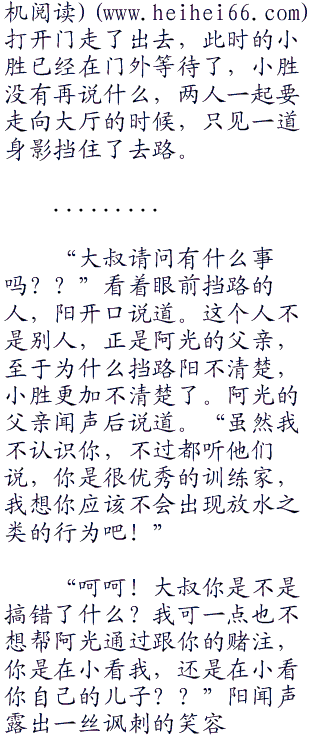 机阅读)(www.heihei66.com)
打开门走了出去，此时的小
胜已经在门外等待了，小胜
没有再说什么，两人一起要
走向大厅的时候，只见一道
身影挡住了去路。
.........
“大叔请问有什么事
吗？？”看着眼前挡路的
人，阳开口说道。这个人不
是别人，正是阿光的父亲，
至于为什么挡路阳不清楚，
小胜更加不清楚了。阿光的
父亲闻声后说道。“虽然我
不认识你，不过都听他们
说，你是很优秀的训练家，
我想你应该不会出现放水之
类的行为吧！”
“呵呵！大叔你是不是
搞错了什么？我可一点也不
想帮阿光通过跟你的赌注，
你是在小看我，还是在小看
你自己的儿子？？”阳闻声
露出一丝讽刺的笑容